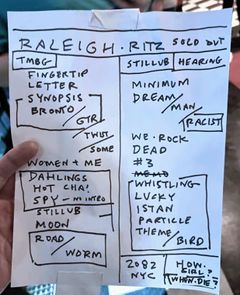 RALEIGH. RITZ SOLD OUT
TMBG
FINGERTIP
LETTER
SYNOPSIS
BRONTO / GTR
TWIST
SOME
WOMEN + ME
DAHLINGS
HOT CHA!
SPY - NO INTRO
STILLUB
MOON
ROAD / WORM
STILLUB HEARING
MINIMUM
DREAM / MAN
RACIST
WE. ROCK
DEAD
#3
MEMO
WHISTLING
LUCKY
ISTAN
PARTICLE
THEME / BIRD
2082
NYC
HOW. GIRL?
WHEN. DIE?